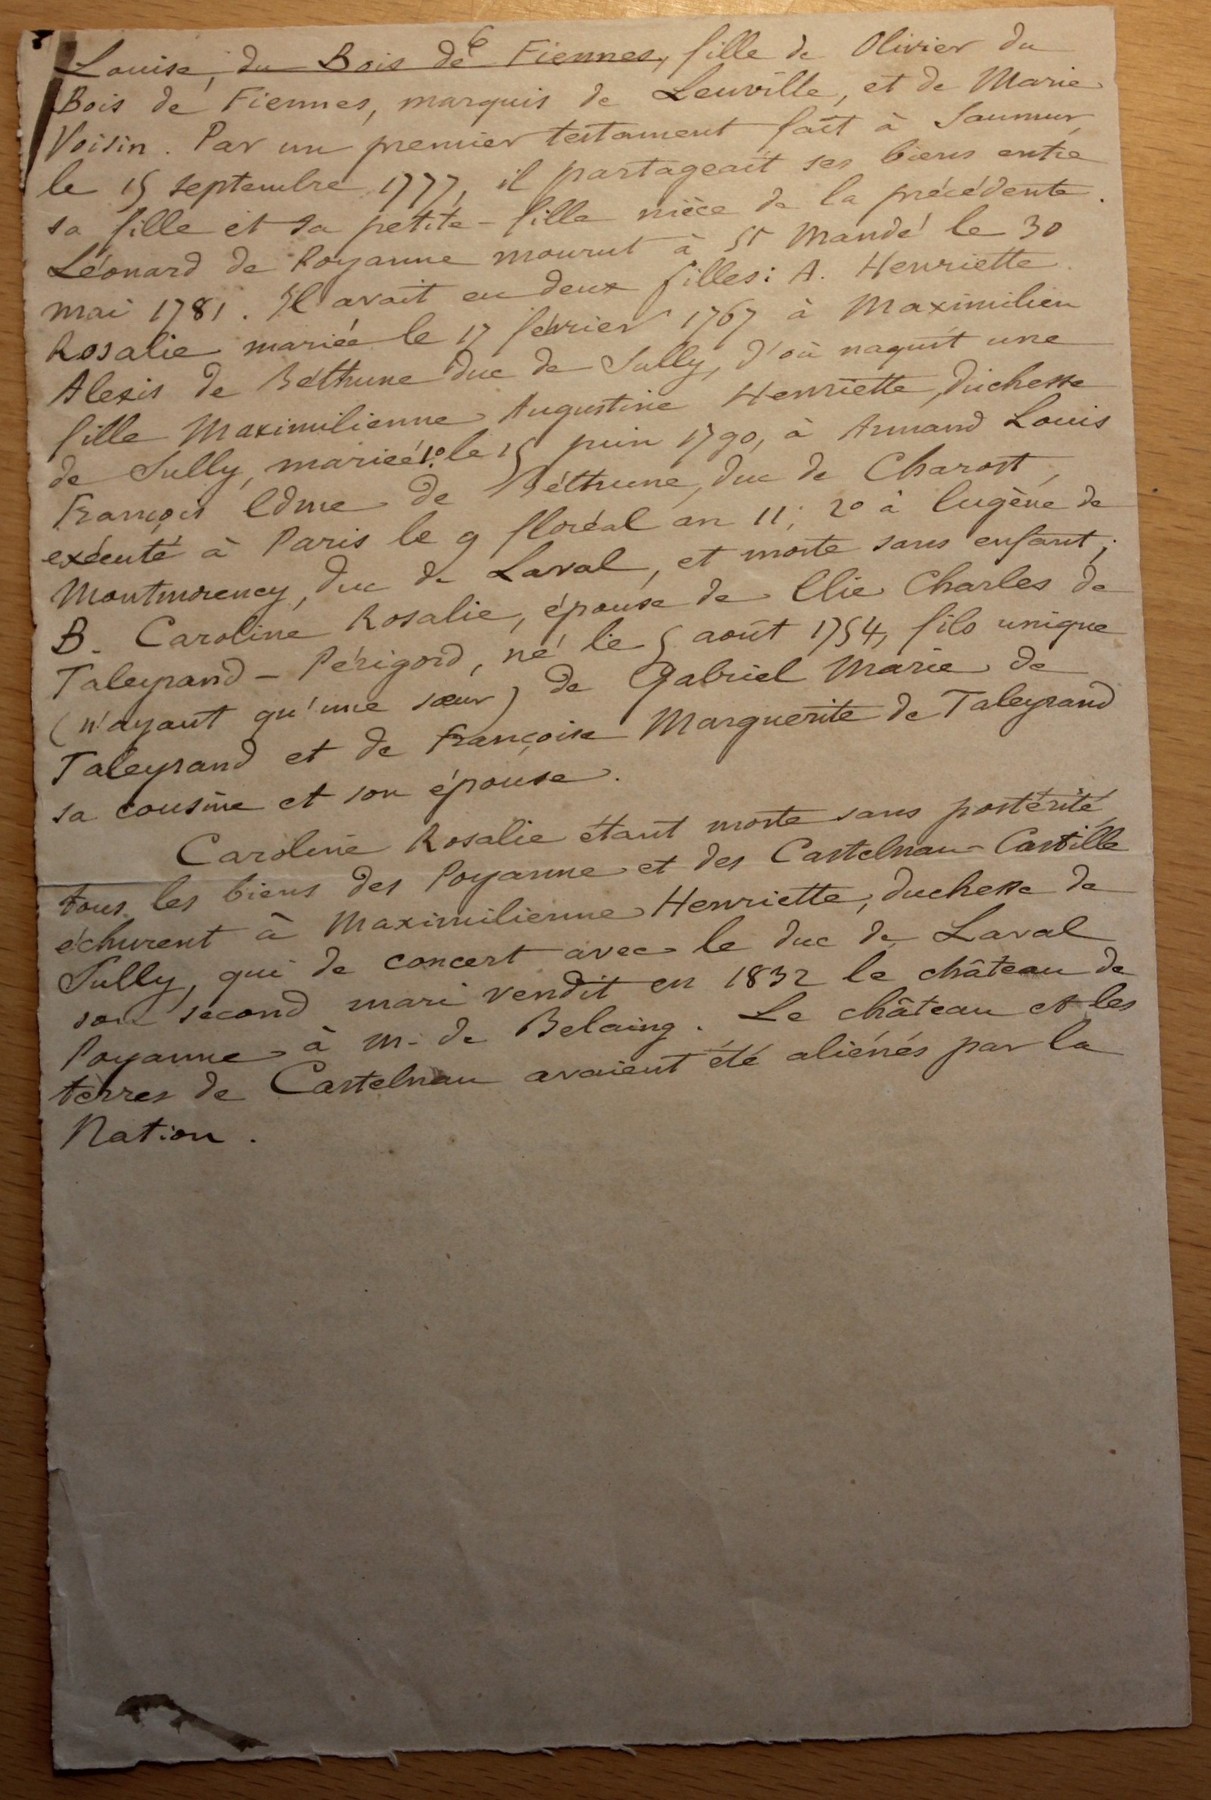 6
Louise du Bois de Fiennes, fille de Olivier du
Bois de Fiennes, marquis de Leuville, et de Marie
Voisin. Par un premier testament fait à Saumur,
le 15 septembre 1777, il partageait ses biens entre
sa fille et sa petite-fille nièce de la précédente.
Léonard de Poyanne mourut à St Mandé le 30
mai 1781. Il avait eu deux filles: A. Henriette
Rosalie mariée le 17 février 1767 à Maximilien
Alexis de Béthune duc de Sully, d'où naquit une
fille Maximilienne Augustine Henriette, duchesse
de Sully, mariée 1º le 15 juin 1790, à Armand Louis
François Edme de Béthune, duc de Charost,
exécuté à Paris le 9 floréal an 11; 2º à Eugène de
Montmorency, duc de Laval, et morte sans enfant;
B. Caroline Rosalie, épouse de Elie Charles de
Taleyrand-Périgord, né le 5 août 1754, fils unique
(n'ayant qu'une sœur) de Gabriel Marie de
Taleyrand et de Françoise Marguerite de Taleyrand
sa cousine et son épouse.
Caroline Rosalie étant morte sans postérité,
tous les biens des Poyanne et des Castelnau-Castille
échurent à Maximilienne Henriette, duchesse de
Sully, qui de concert avec le duc de Laval
son second mari vendit en 1832 le château de
Poyanne à M. de Belaing. Le château et les
terres de Castelnau avaient été aliénés par la
Nation.